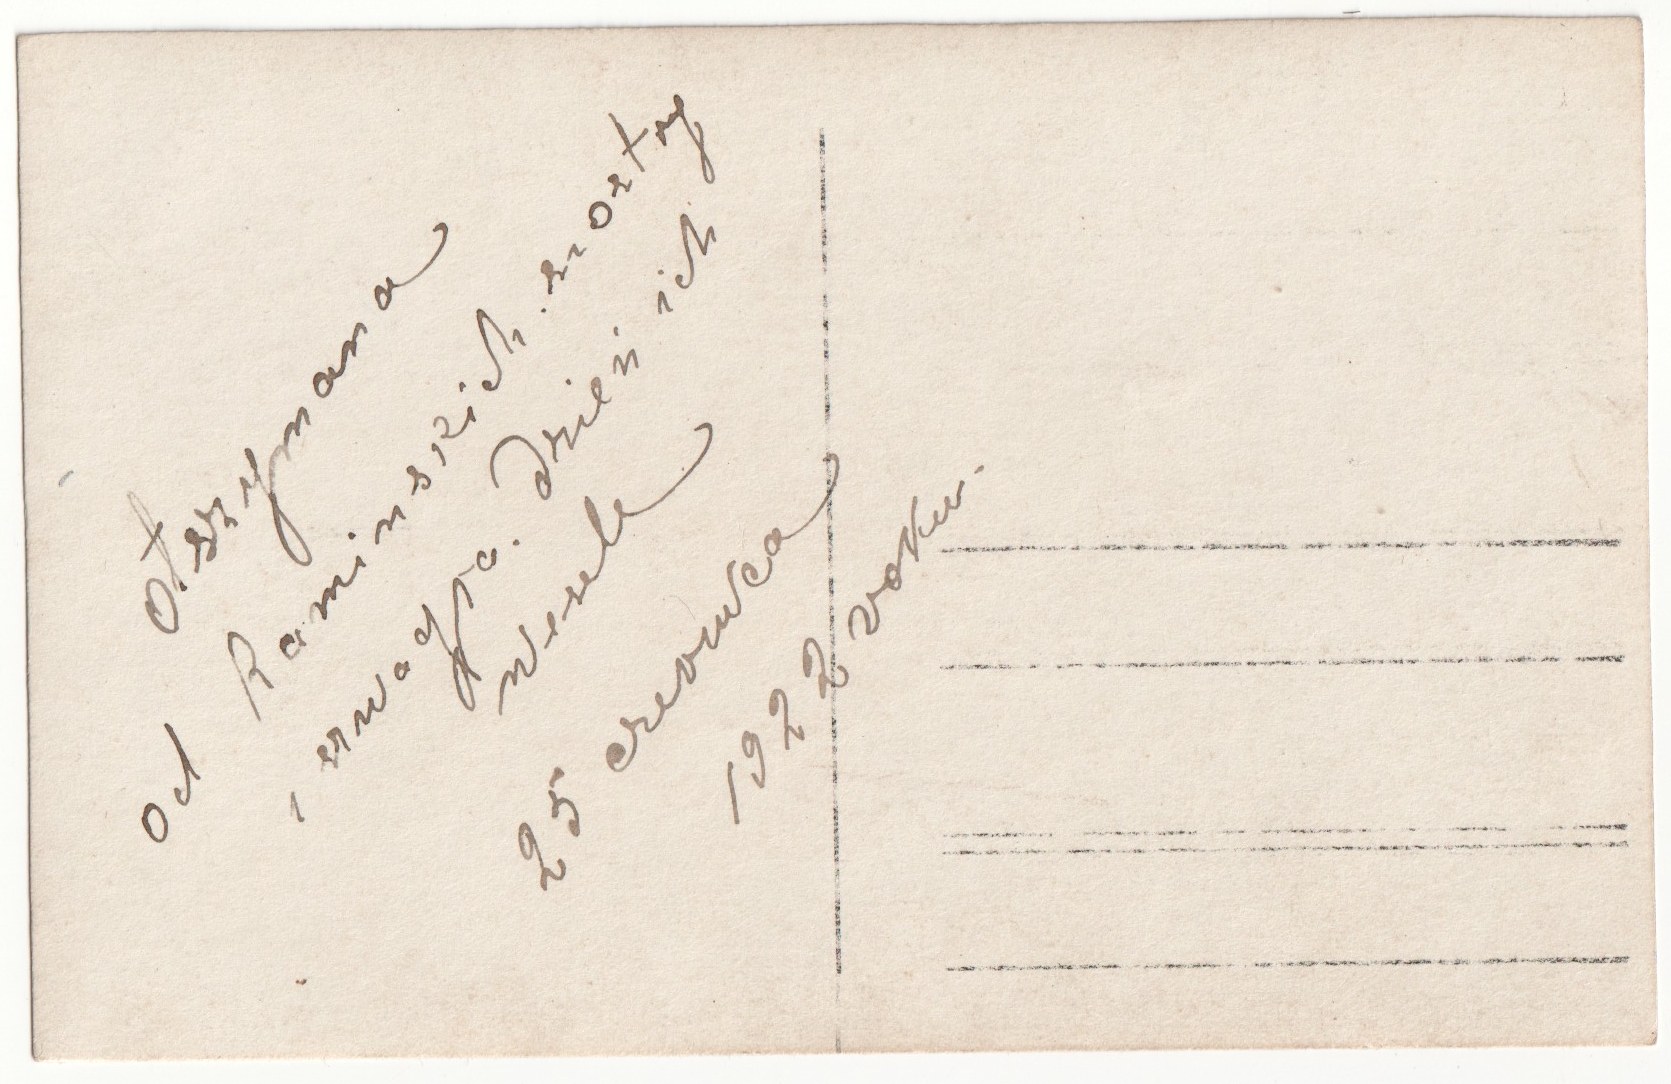 Otszymana
od Kaminskich siostry
i szwagra. dzien ich
wesele
25 czerwca
1922 roku.